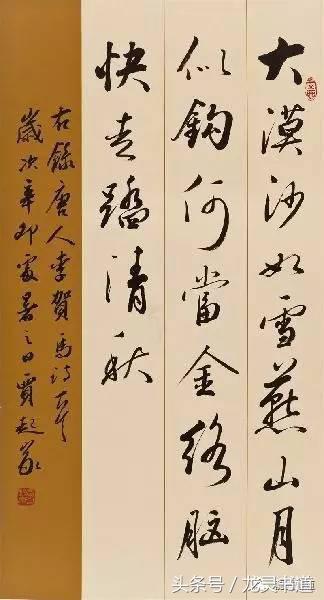 大漠沙如雪燕山月
似鈎何當金络脑
快走踏清秋
右錄唐人李賀馬诗一首
歲次辛卯處暑之日賈起家
头条号/龙灵书道